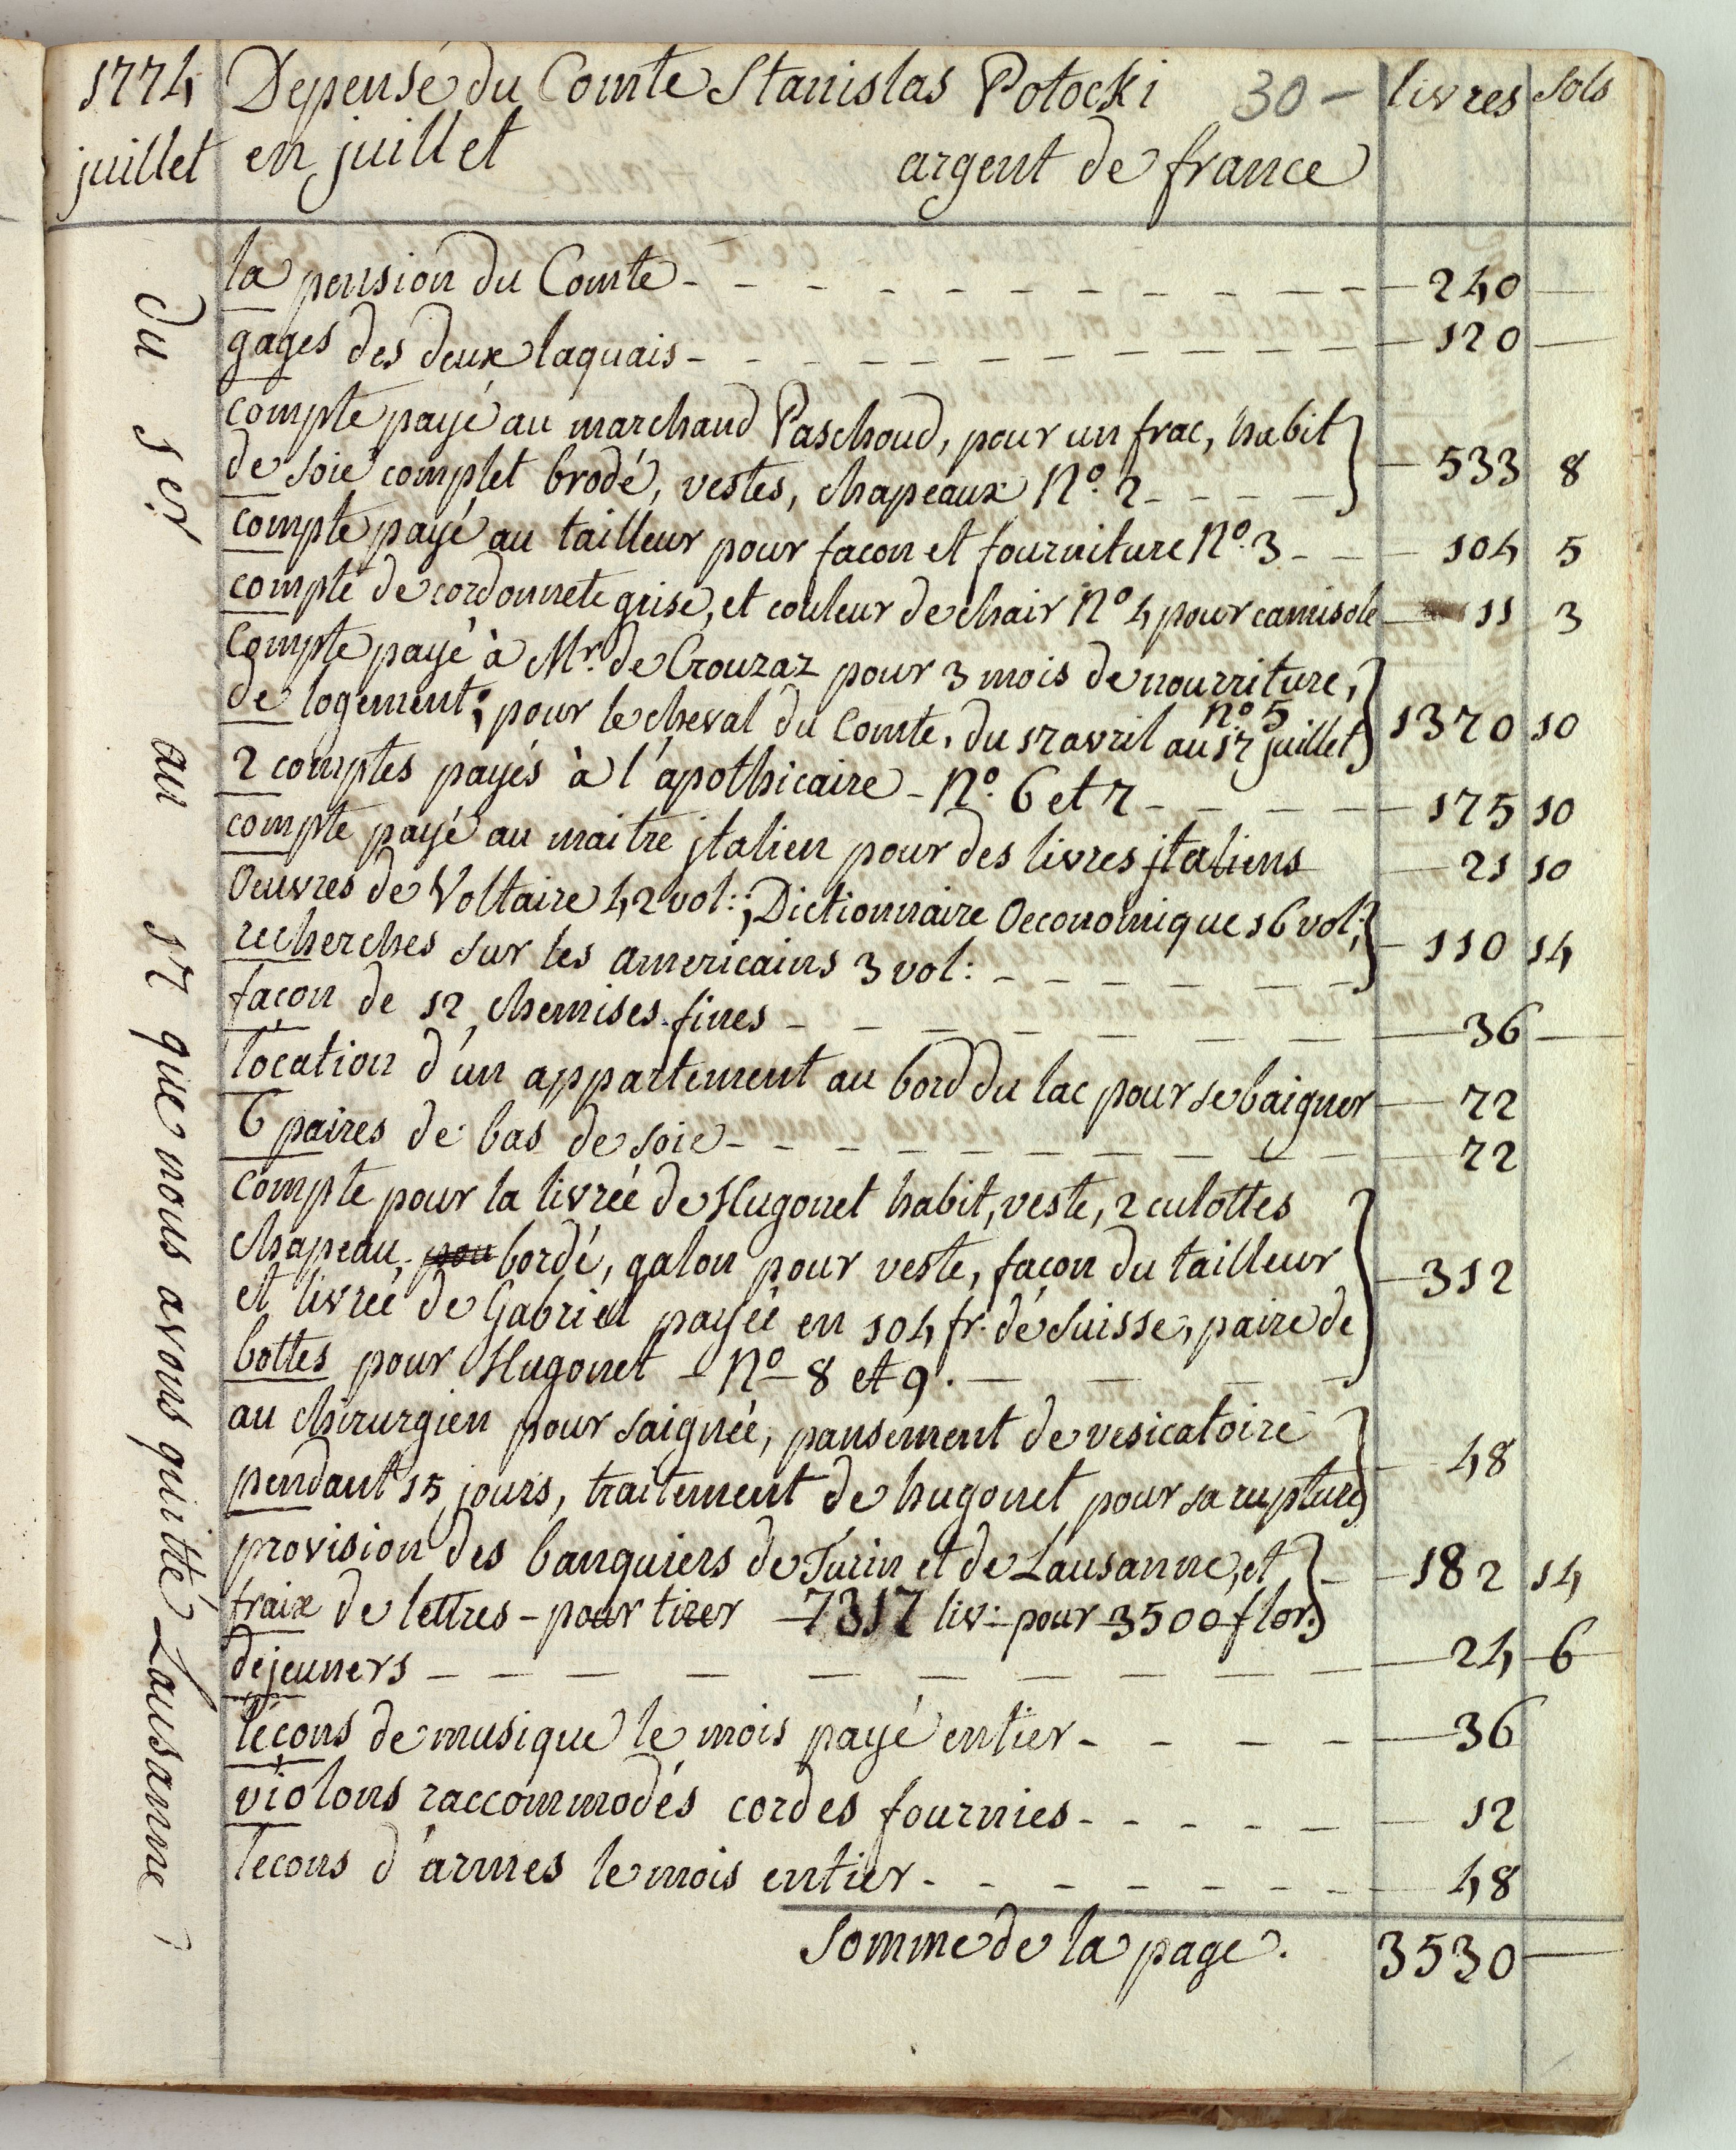 1774 Depense du Comte Stanislas Potocki 30 - livres sols
juillet en juillet argent de france
la pension du Comte - - - - - - - - - - 240 —
gages des deux laquais - - - - - - - - - 120 —
compte payé au marchand Paschoud, pour un frac, habit
de soie complet brodé, vestes, chapeaux Nº. 2 - - - - 533 8
compte payé au tailleur pour facon et fourniture Nº. 3 - - 104 5
compte de cordonnete grise, et couleur de chair Nº 4 pour camisole 11 3
Compte payé à Mr. de Crouzaz pour 3 mois de nourriture,
de logement; pour le cheval du Comte, du 17 avril au 17 juillet nº. 5 1370 10
2 comptes payés à l'apothicaire - Nº. 6 et 7 - - - - 175 10
compte payé au maitre jtalien pour des livres jtaliens 21 10
Oeuvres de Voltaire 42 vol:; Dictionnaire Oeconomique 16 vol:;
recherches sur les americains 3 vol: - - - - - - 110 14
façon de 12 chemises fines - - - - - - - 36 —
location d'un appartement au bord du lac pour se baigner 72
6 paires de bas de soie - - - - - - - - - 72
Compte pour la livrée de Hugonet habit, veste, 2 culottes
chapeau, pou bordé, galon pour veste, facon du tailleur
et livrée de Gabriel payée en 104 fr. de Suisse, paire de
bottes pour Hugonet - Nº - 8 et 9. - - - - 312
au chirurgien pour saignée, pansement de vesicatoire
pendant 15 jours, traitement de hugonet pour sa rupture 48
provision des banquiers de Turin et de Lausanne, et
fraix de lettres - pour tirer - 7317 liv: pour 3500 flor: 182 14
dejeuners - - - - - - - - - 24 6
leçons de musique le mois payé entier - - - - 36
violons raccommodés cordes fournies - - - - - 12
lecons d'armes le mois entier - - - - - - - 48
Somme de la page. 3530 —
du 1er au 17 que nous avons quitté Lausanne